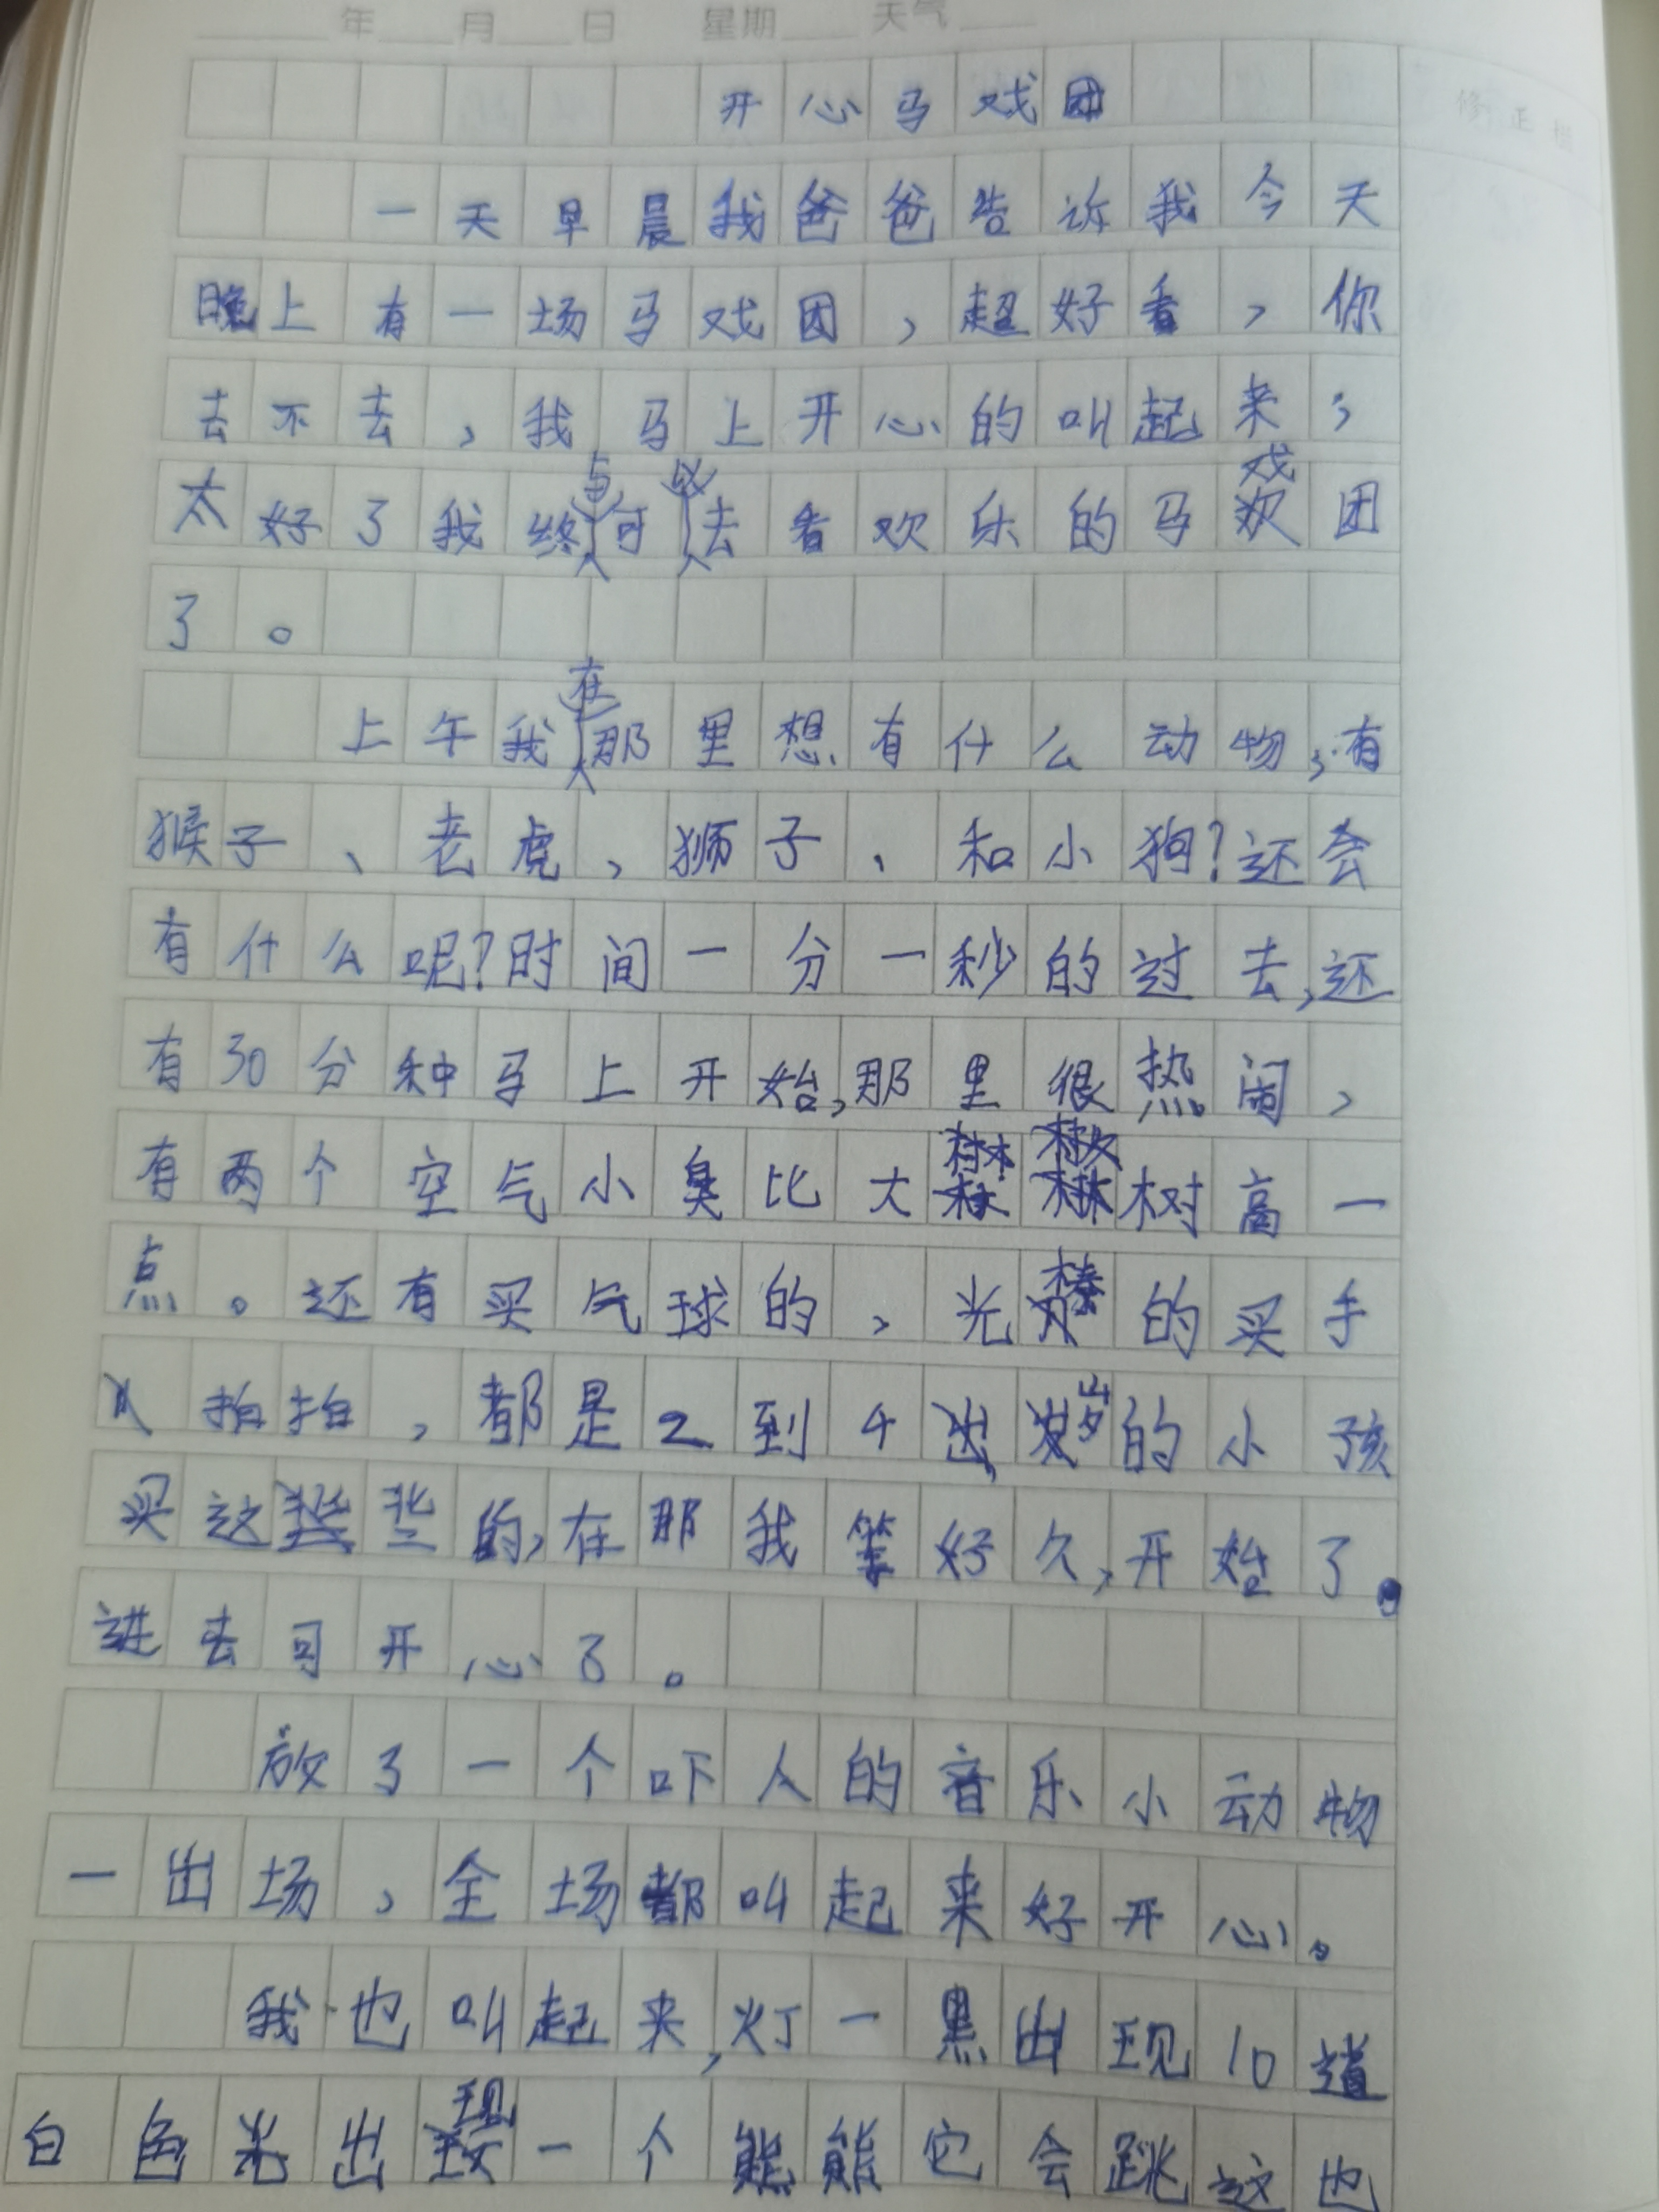 年 月 日 星期 天气
修正栏
开心马戏团
一天早晨我爸爸告诉我今天
晚上有一场马戏团，超好看，你
去不去，我马上开心的叫起来，
太好了我终与可以去看欢乐的马戏团
了。
上午我在那里想有什么动物，有
猴子、老虎，狮子、和小狗？还会
有什么呢？时间一分一秒的过去，还
有30分种马上开始，那里很热闹，
有两个空气小臭比大树高一
点。还有买气球的，光棒的买手
拍拍，都是2到4岁的小孩
买这些的，在那我等好久，开始了。
进去可开心了。
放了一个吓人的音乐小动物
一出场，全场都叫起来好开心。
我也叫起来，灯一黑出现10道
白色光出现一个熊熊它会跳这也